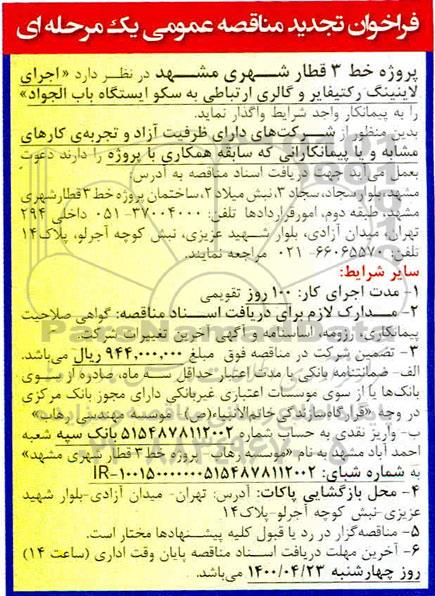 فراخوان تجدید مناقصه عمومی یک مرحله ای
پروژه خط ۳ قطار شهری مشهد در نظر دارد «اجرای
لاینینگ رکتیفایر و گالری ارتباطی به سکو ایستگاه باب الجواد»
را به پیمانکار واجد شرایط واگذار نماید.
بدین منظور از شرکت‌های دارای ظرفیت آزاد و تجربه‌ی کارهای
مشابه و یا پیمانکارانی که سابقه همکاری با پروژه را دارند دعوت
بعمل می‌آید جهت دریافت اسناد مناقصه به آدرس:
مشهد، بلوار سجاد، سجاد ۲، نبش میلاد ۲، ساختمان پروژه خط ۳ قطارشهری
مشهد، طبقه دوم، امور قراردادها تلفن: ۳۷۰۰۴۰۰۰-۰۵۱ داخلی ۲۹۴
تهران، میدان آزادی، بلوار شهید عزیزی، نبش کوچه آجرلو، پلاک۱۴
تلفن: ۶۶۰۶۵۵۷۰-۰۲۱ مراجعه نمایند.
سایر شرایط:
۱- مدت اجرای کار: ۱۰۰ روز تقویمی
۲- مدارک لازم برای دریافت اسناد مناقصه: گواهی صلاحیت
پیمانکاری، رزومه، اساسنامه و آگهی آخرین تغییرات شرکت.
۳- تضمین شرکت در مناقصه فوق مبلغ ۹۴۴,۰۰۰,۰۰۰ ریال می‌باشد.
الف- ضمانتنامه بانکی با مدت اعتبار حداقل سه ماه، صادره از سوی
بانک‌ها یا از سوی موسسات اعتباری غیربانکی دارای مجوز بانک مرکزی
در وجه «قرارگاه سازندگی خاتم‌الانبیاء(ص) - موسسه مهندسی رهاب»
ب- واریز نقدی به حساب شماره ۵۱۵۴۸۷۸۱۱۲۰۰۲ بانک سپه شعبه
احمد آباد مشهد به نام «موسسه رهاب - پروژه خط ۳ قطار شهری مشهد»
به شماره شبای: IR-۱۰۰۱۵۰۰۰۰۰۰۵۱۵۴۸۷۸۱۱۲۰۰۲
۴- محل بازگشایی پاکات: آدرس: تهران- میدان آزادی-بلوار شهید
عزیزی-نبش کوچه آجرلو-پلاک۱۴
۵- مناقصه‌گزار در رد یا قبول کلیه پیشنهادها مختار است.
۶- آخرین مهلت دریافت اسناد مناقصه پایان وقت اداری (ساعت ۱۴)
روز چهارشنبه ۱۴۰۰/۰۴/۲۳ می‌باشد.